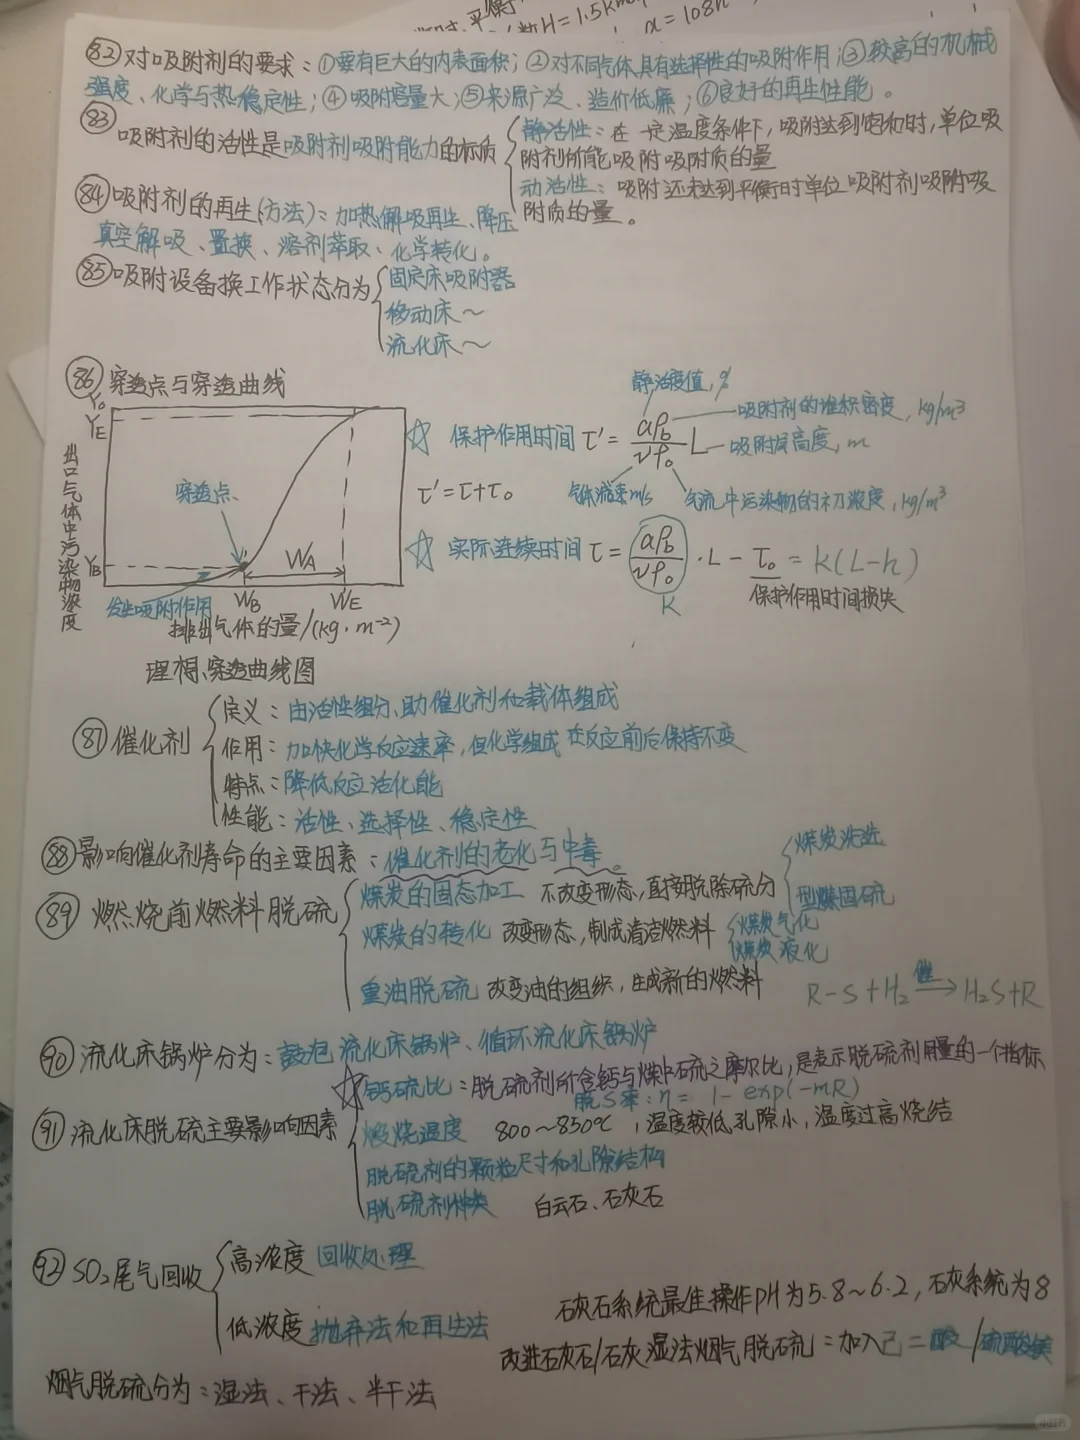 H=1.5km
α=108
82 对吸附剂的要求：①要有巨大的内表面积；②对不同气体具有选择性的吸附作用；③较高的机械
强度、化学与热稳定性；④吸附容量大；⑤来源广泛、造价低廉；⑥良好的再生性能。
83 吸附剂的活性是吸附剂吸附能力的标质
静活性：在一定温度条件下，吸附达到饱和时，单位吸
附剂所能吸附吸附质的量
动活性：吸附还未达到平衡时单位吸附剂吸附吸
附质的量。
84 吸附剂的再生(方法)：加热解吸再生、降压
真空解吸、置换、溶剂萃取、化学转化。
85 吸附设备换工作状态分为
固定床吸附器
移动床～
流化床～
86 穿透点与穿透曲线
Y₀
YE
出口气体中污染物浓度
穿透点
YB
WA
WB WE
发生吸附作用
排出气体的量/(kg·m⁻²)
理想穿透曲线图
静活度值，%
吸附剂的堆积密度，kg/m³
☆ 保护作用时间 τ′= aρb/vρ₀ L
吸附层高度，m
τ′=τ+τ₀
气体流速m/s
气流中污染物的初浓度，kg/m³
☆ 实际连续时间 τ= aρb/vρ₀ ·L－τ₀ = K(L-h)
K
保护作用时间损失
87 催化剂
定义：由活性组分、助催化剂和载体组成
作用：加快化学反应速率，但化学组成在反应前后保持不变
特点：降低反应活化能
性能：活性、选择性、稳定性
88 影响催化剂寿命的主要因素：催化剂的老化与中毒。
89 燃烧前燃料脱硫
煤炭的固态加工 不改变形态，直接脱除硫分
煤炭洗选
型煤固硫
煤炭的转化 改变形态，制成清洁燃料
煤炭气化
煤炭液化
重油脱硫 改变油的组织，生成新的燃料
R-S+H₂ 催→ H₂S+R
90 流化床锅炉分为：鼓泡流化床锅炉、循环流化床锅炉
91 流化床脱硫主要影响因素
☆钙硫比：脱硫剂所含钙与煤中硫之摩尔比，是表示脱硫剂用量的一个指标
脱S率：η= 1-exp(-mR)
煅烧温度 800～850℃，温度较低孔隙小，温度过高烧结
脱硫剂的颗粒尺寸和孔隙结构
脱硫剂种类 白云石、石灰石
92 SO₂尾气回收
高浓度 回收处理
低浓度 抛弃法和再生法
石灰石系统最佳操作pH为5.8～6.2，石灰系统为8
改进石灰石/石灰湿法烟气脱硫：加入己二酸/硫酸镁
烟气脱硫分为：湿法、干法、半干法
小红书